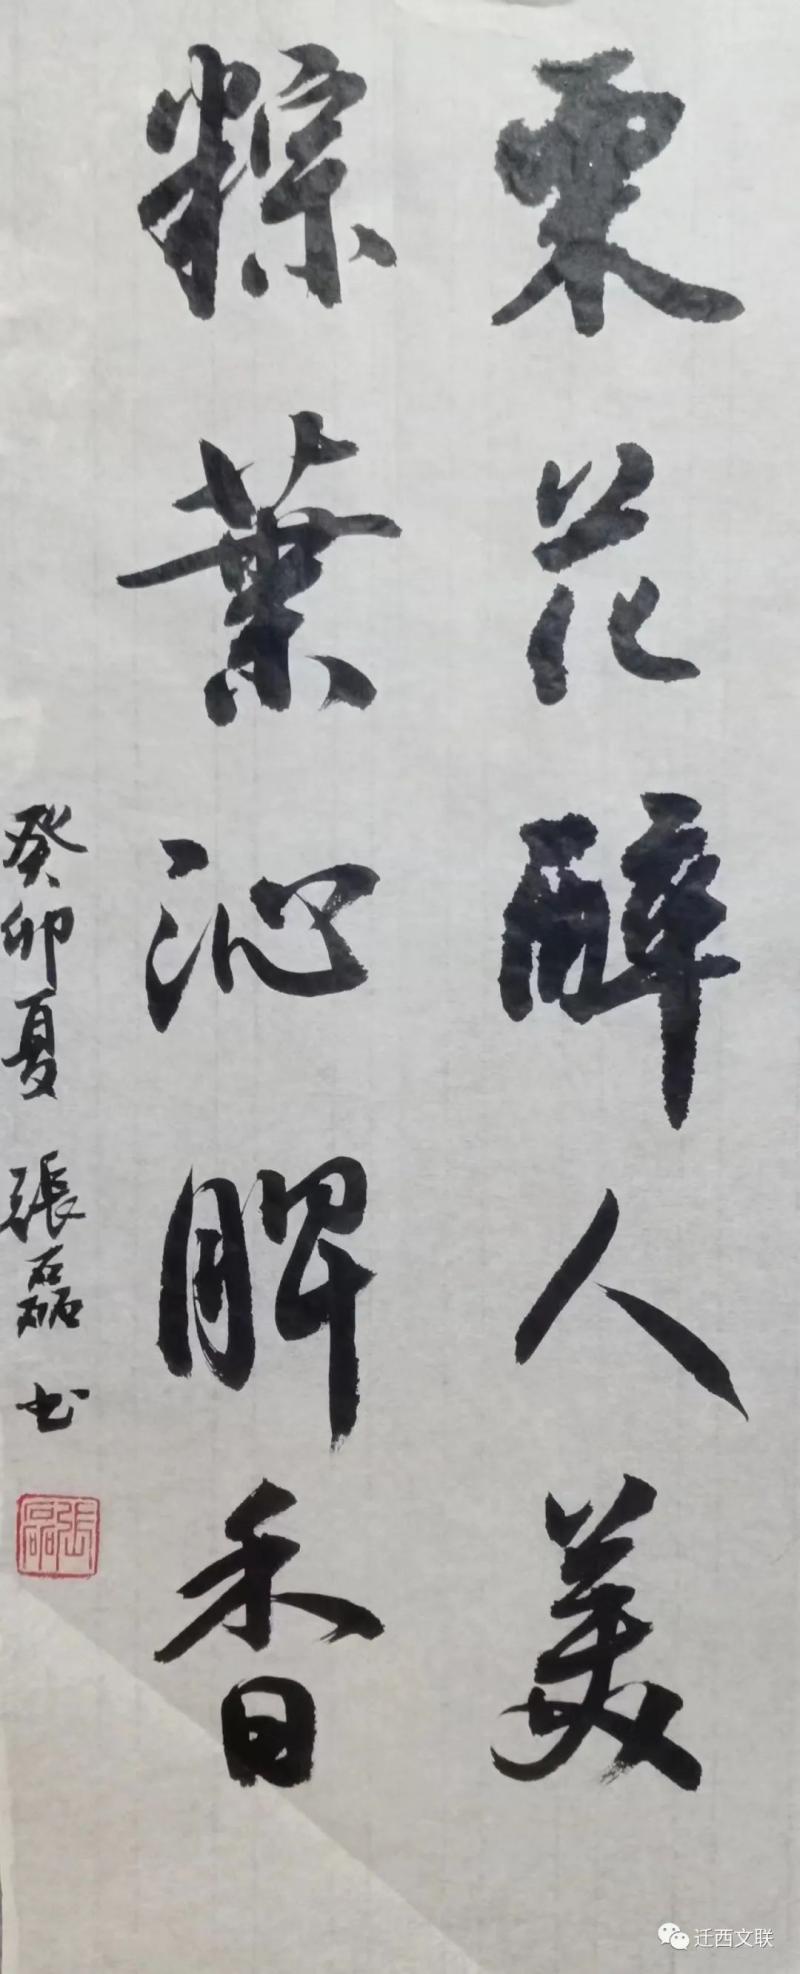 栗花醉人美
粽葉沁脾香
癸卯夏 張磊书
張磊
迁西文联